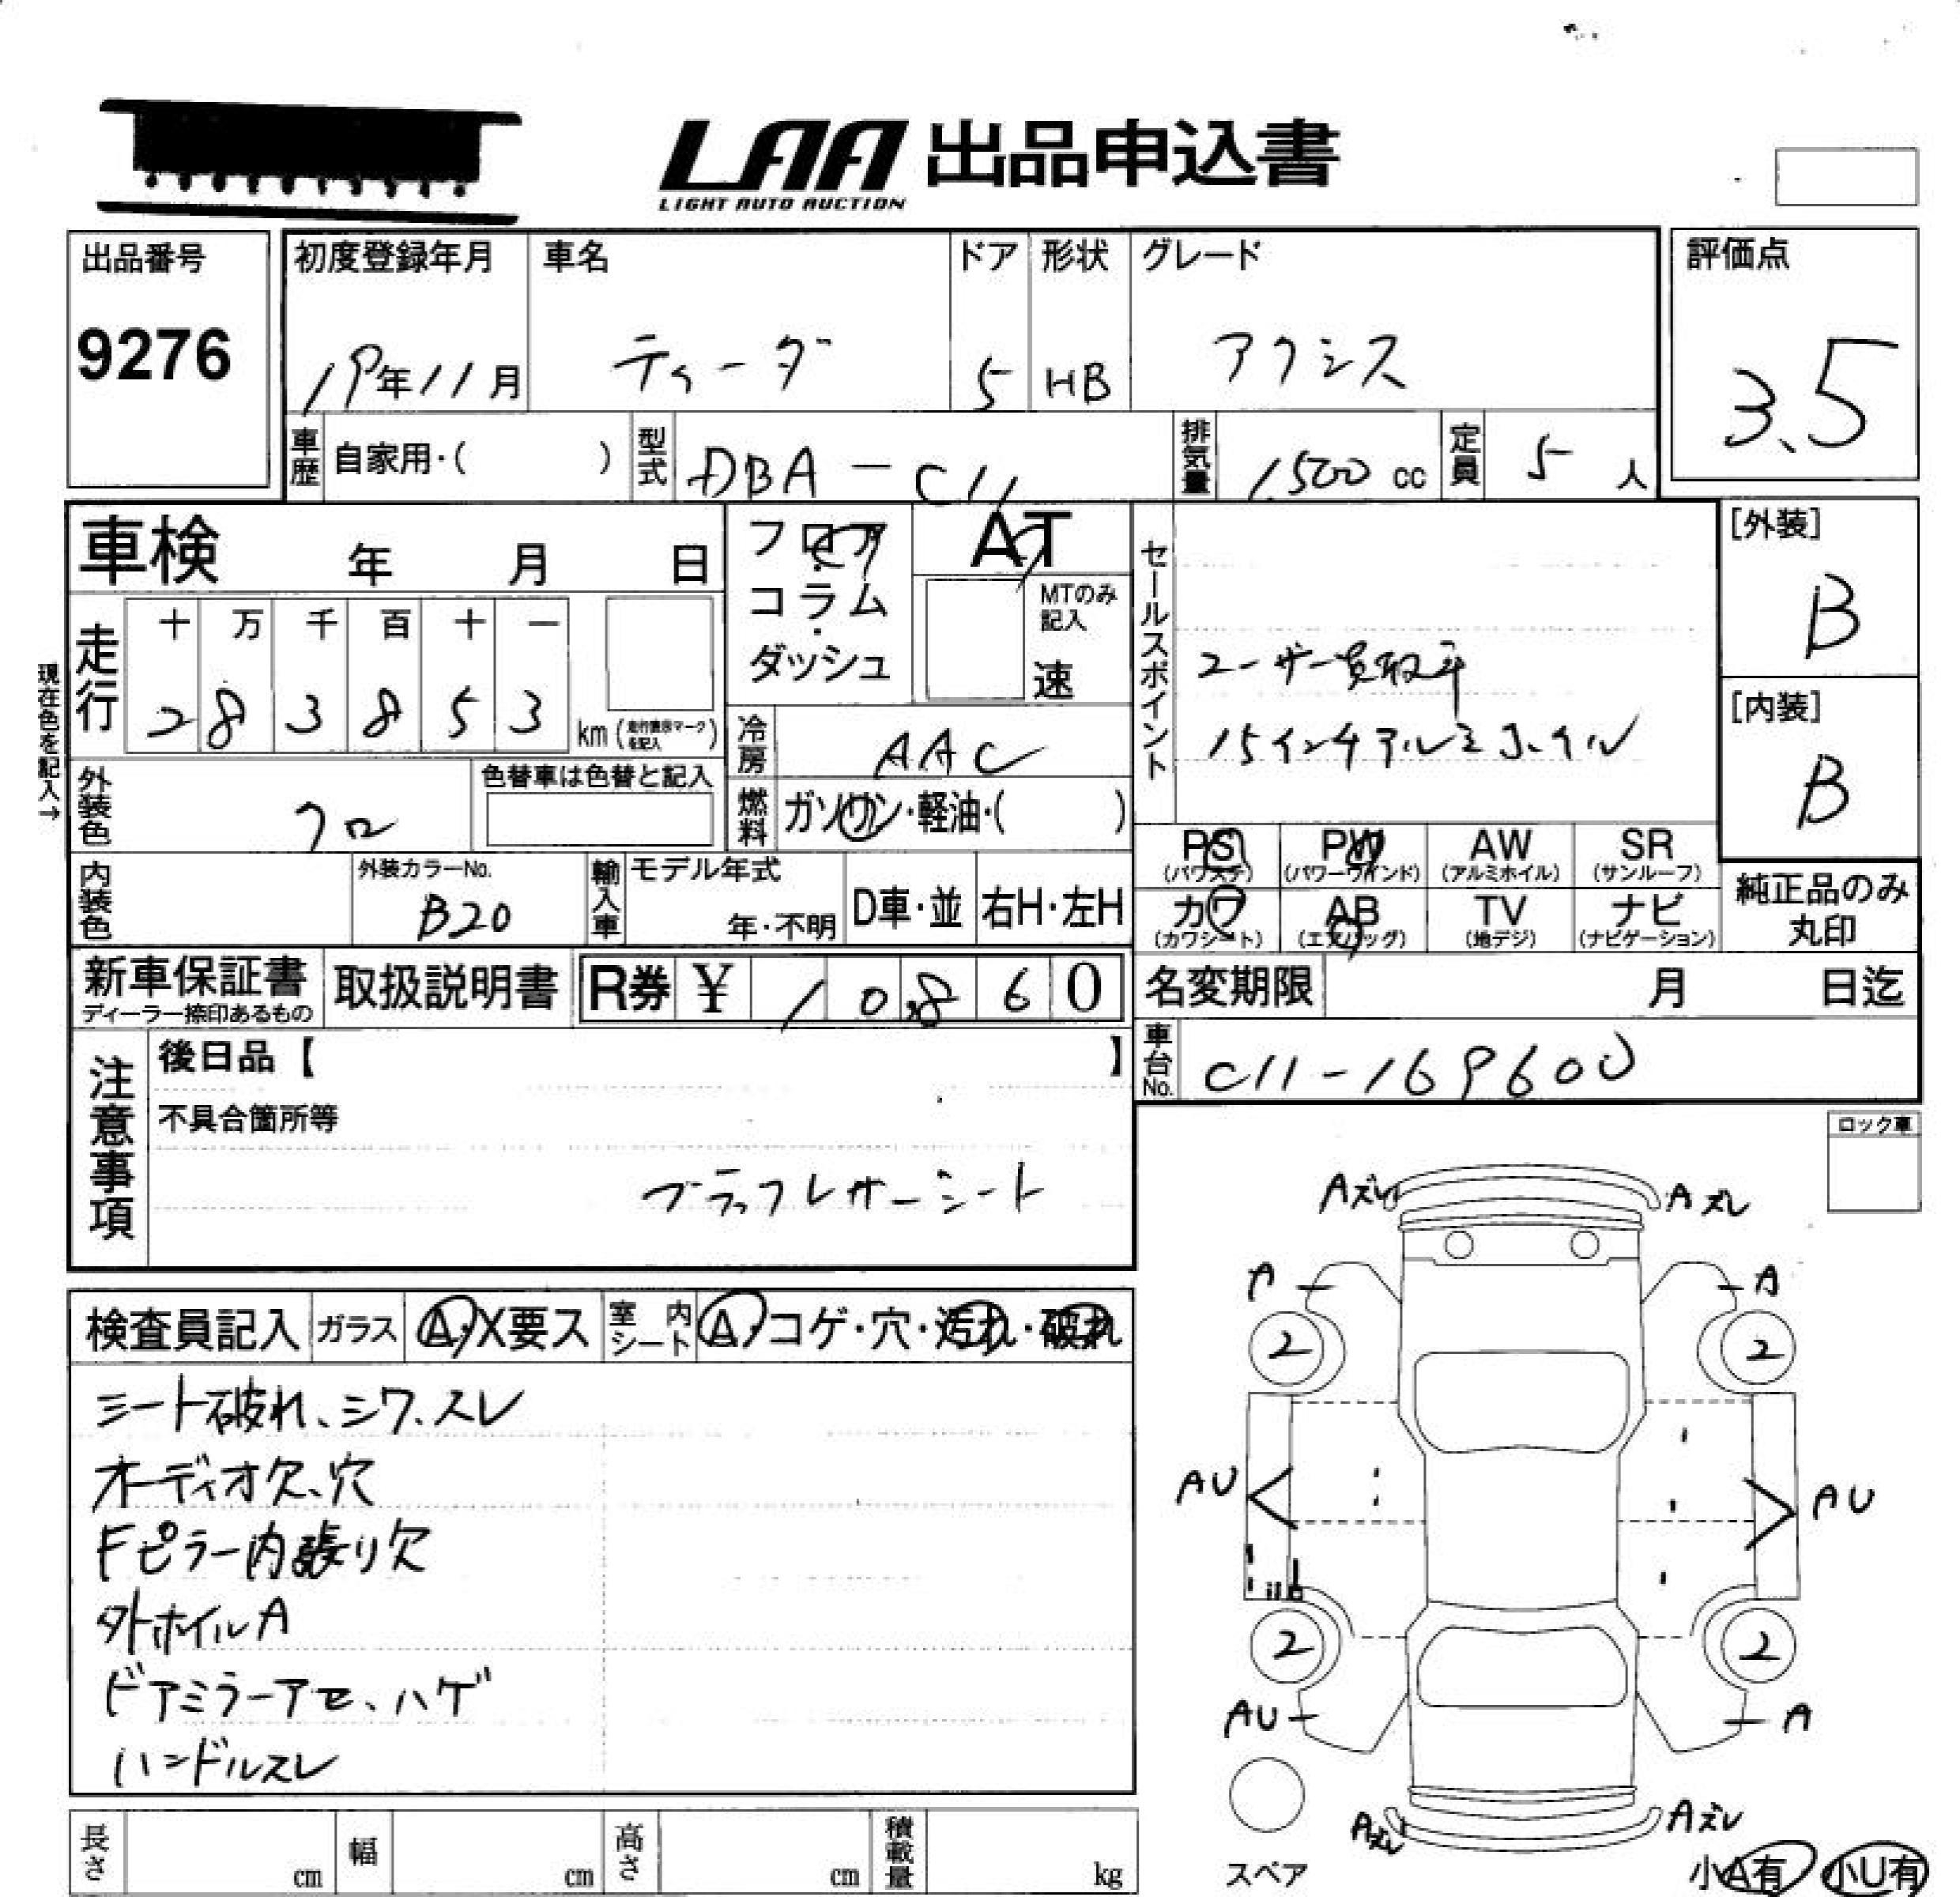 LAA 出品申込書
LIGHT AUTO AUCTION
出品番号
9276
初度登録年月 車名 ドア 形状 グレード
19年11月 ティーダ 5 HB アクシス
評価点
3.5
車歴 自家用・( ) 型式 DBA-C11 排気量 1500 cc 定員 5 人
車検 年 月 日
フロア・コラム・ダッシュ
AT
MTのみ記入
速
セールスポイント
ユーザー買取車
15インチアルミホイル
[外装]
B
[内装]
B
現在色を記入→
走行 十 万 千 百 十 一
2 8 3 8 5 3 km (走行表示マークを記入)
冷房 AAC
外装色 クロ
色替車は色替と記入
燃料 ガソリン・軽油・( )
PS AW SR
PW
(パワステ) (パワーウインド) (アルミホイル) (サンルーフ)
カワ AB TV ナビ
(カワシート) (エアバッグ) (地デジ) (ナビゲーション)
純正品のみ
丸印
内装色
外装カラーNo.
B20
輸入車 モデル年式
年・不明 D車・並 右H・左H
新車保証書
ディーラー捺印あるもの
取扱説明書 R券 ¥ 10860
名変期限 月 日迄
車台No. C11-169600
注意事項
後日品【 】
不具合箇所等
ブラックレザーシート
ロック車
検査員記入 ガラス A・X要ス 室内シート A・コゲ・穴・汚れ・破れ
シート破れ、シワ、スレ
オーディオ欠、穴
Fピラー内張り欠
外ホイルA
ドアミラーアセ、ハゲ
ハンドルスレ
Aズレ Aズレ
A A
2 2
AU AU
2 2
AU A
Aズレ Aズレ
スペア
小A有 小U有
長さ cm 幅 cm 高さ cm 積載量 kg